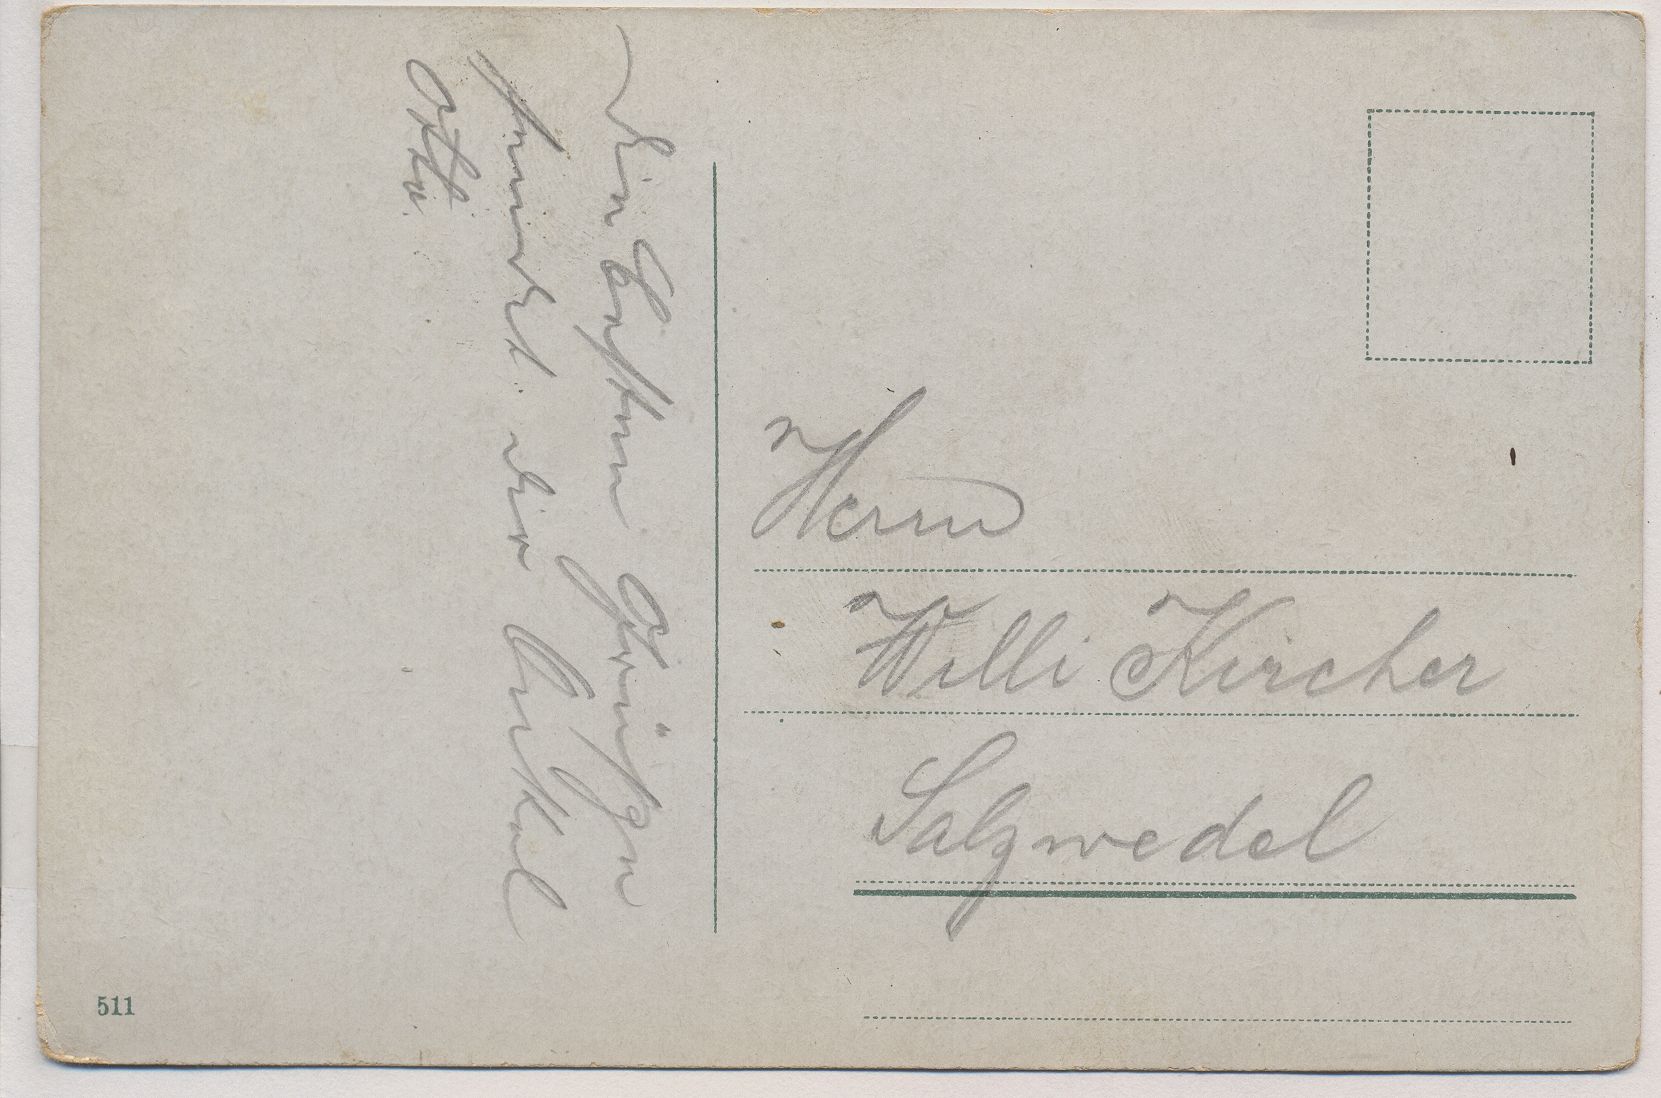 Ein Ostern Grüßgen
sendet dir Onkel
Otto.
Herrn
Willi Kircher
Salzwedel
511